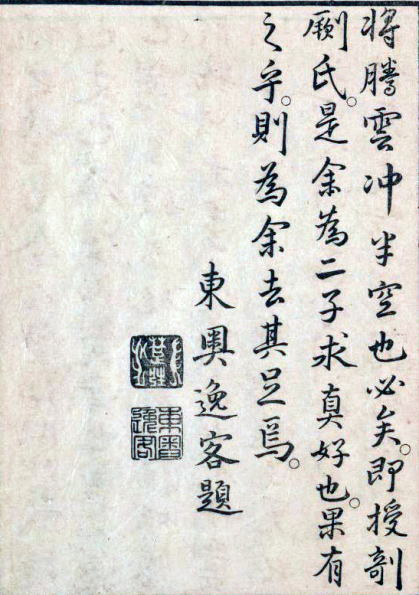 将騰雲冲半空也必矣。即授剞
劂氏。是余為二子求真好也。果有
之乎。則為余去其足焉。
東奥逸客題
東奥逸客